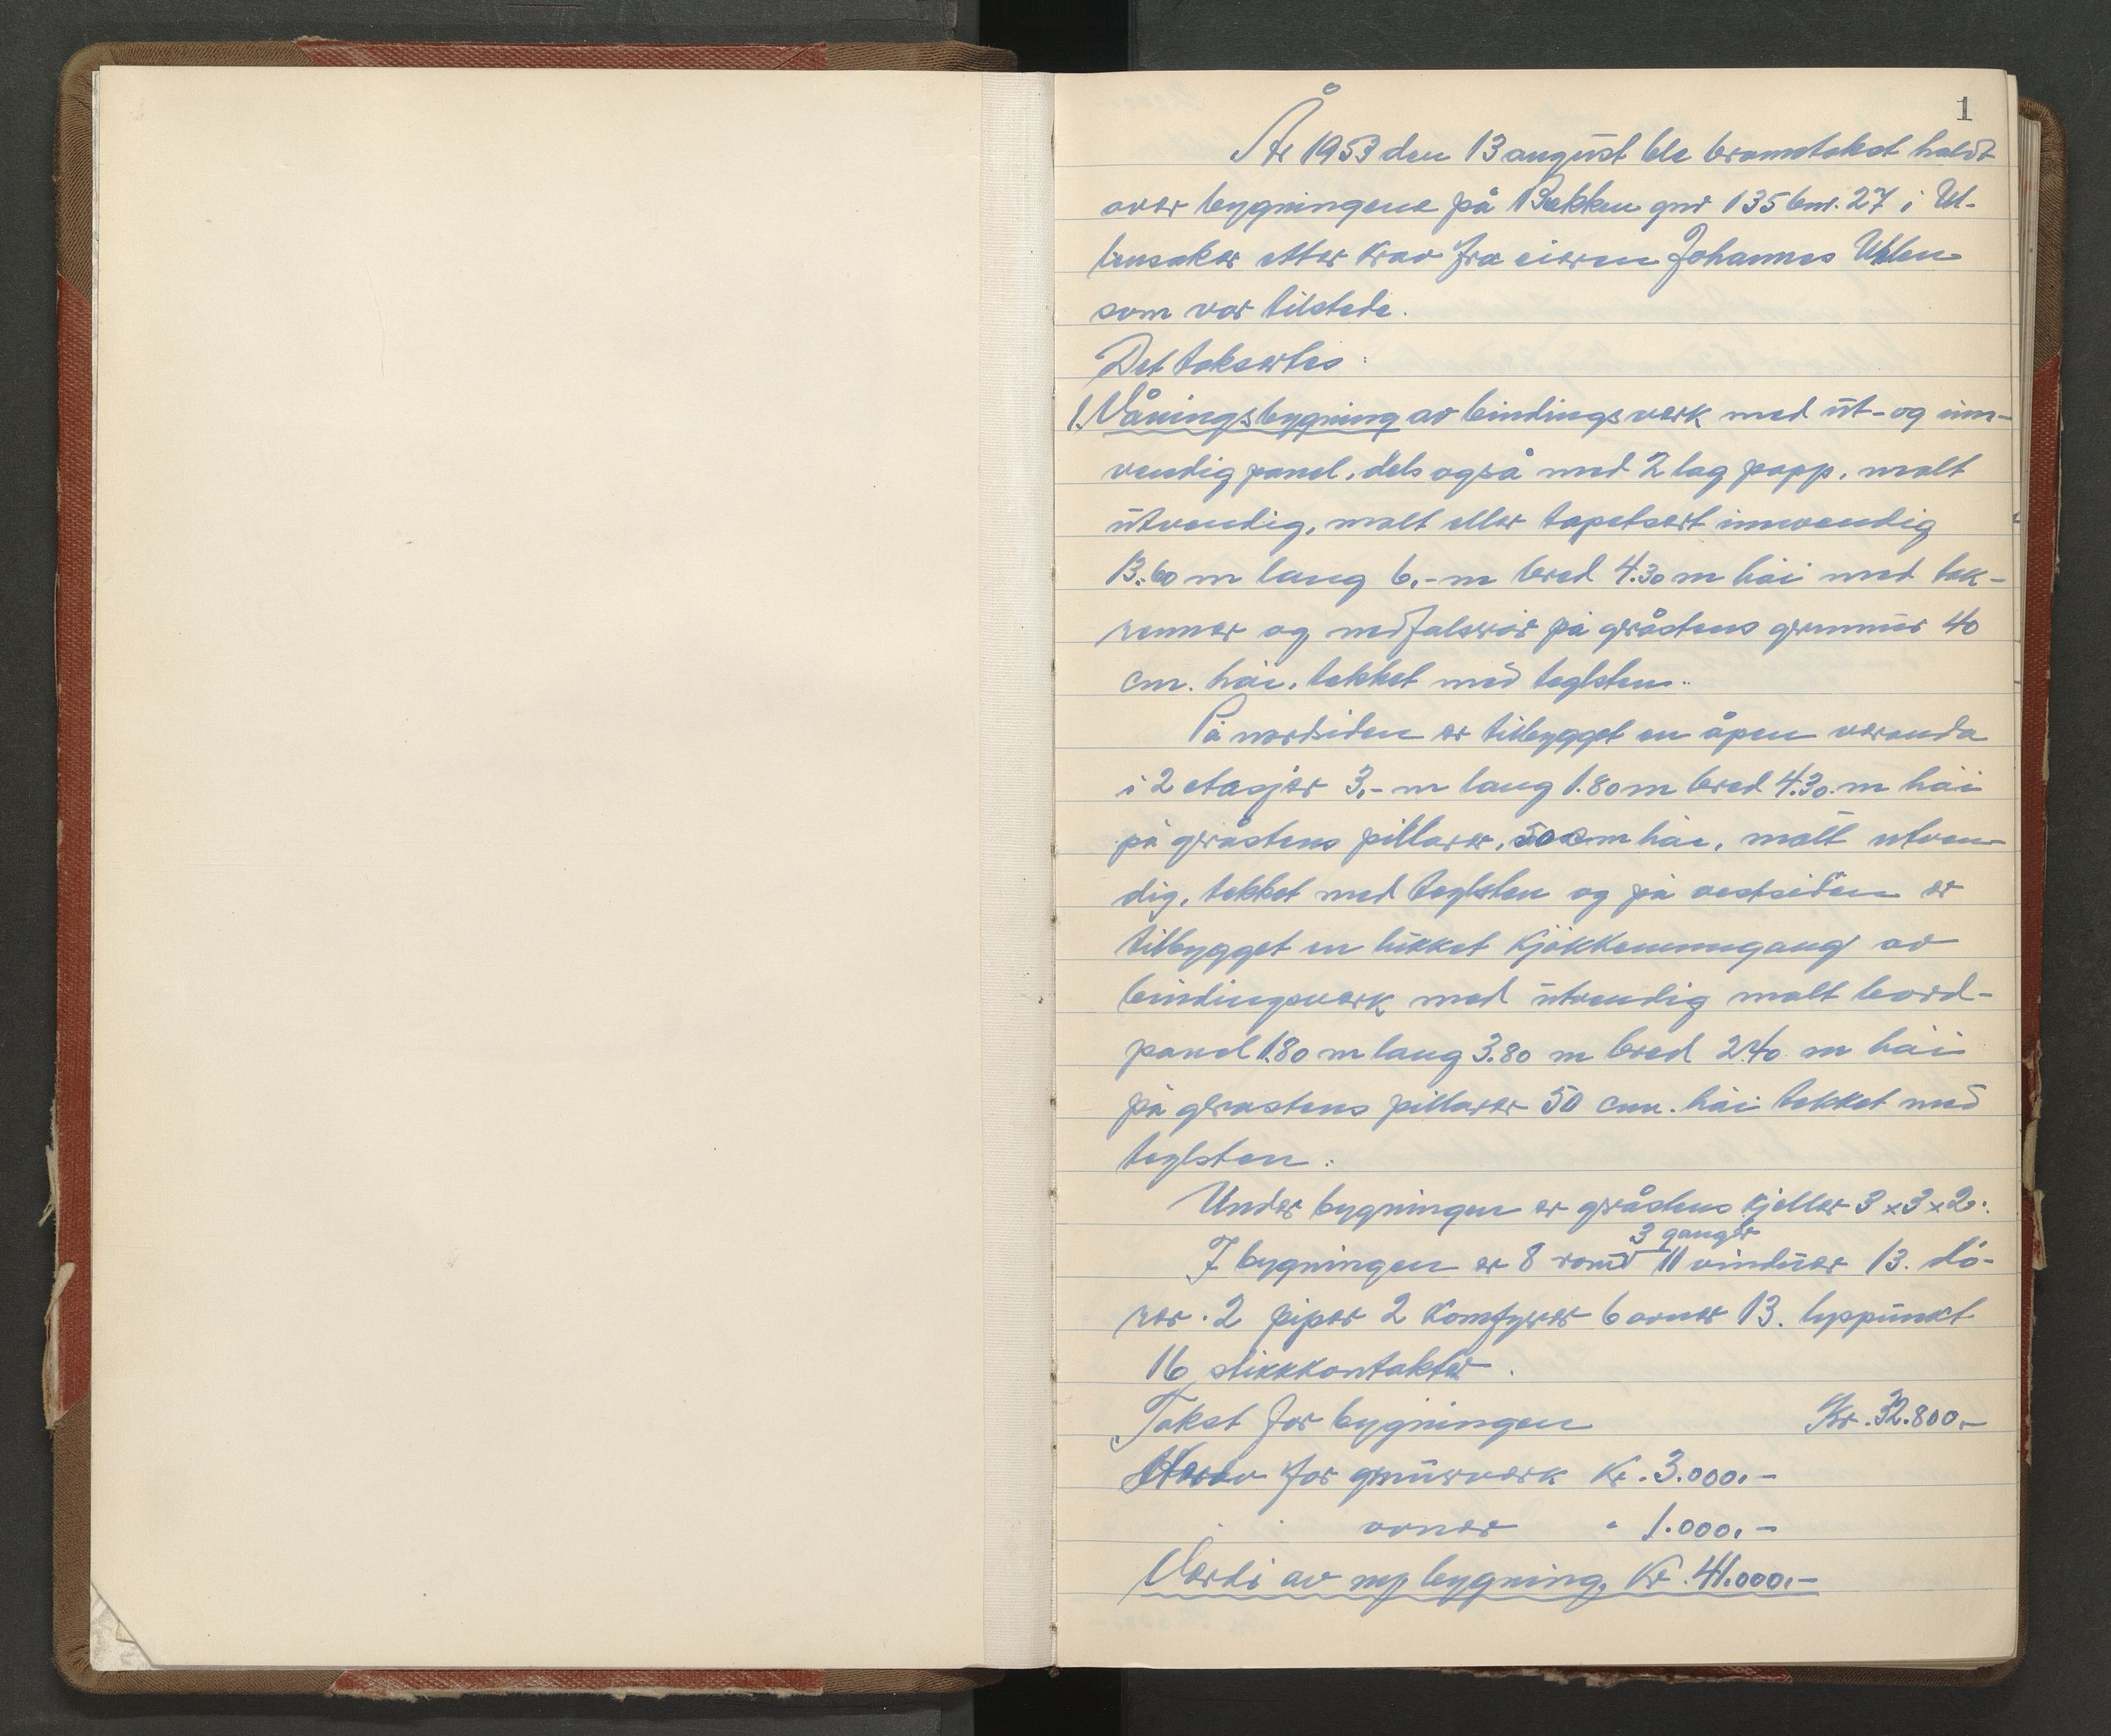 1
År 1953 den 13 august ble branntakst holdt
over bygningene på Bekken gnr 135 bnr. 27 i Ul-
lensaker etter krav fra eieren Johannes Uhlen
som var tilstede.
Det taksertes:
1. Våningsbygning av bindingsverk med ut- og inn-
vendig panel, dels også med 2 lag papp, malt
utvendig, malt eller tapetsert innvendig
13.60 m lang 6,- m bred 4.30 m høi med tak-
renner og nedfalsrør på gråstens grunnur 40
cm. høi, tekket med teglsten.
På nordsiden er tilbygget en åpen veranda
i 2 etasjer 3,- m lang 1.80 m bred 4.30 m høi
på gråstens pillarer, 50 cm høi, malt utven-
dig, tekket med teglsten og på vestsiden er
tilbygget en lukket kjøkkenmngang av
bindingsverk med utvendig malt bord-
panel 1.80 m lang 3.80 m bred 2.40 m høi
på gråstens pillarer 50 cm. høi tekket med
teglsten.
Under bygningen er gråstens kjeller 3 x 3 x 2.
3 ganger
I bygningen er 8 rom 11 vinduer 13. dø-
rer. 2 piper 2 komfyrer 6 ovner 13. lyspunkt
16 stikkkontakter.
Takst for bygningen Kr. 32.800.-
Herav for grmurverk Kr. 3.000.-
ovner " 1.000.-
Verdi av ny bygning. Kr. 41.000.-